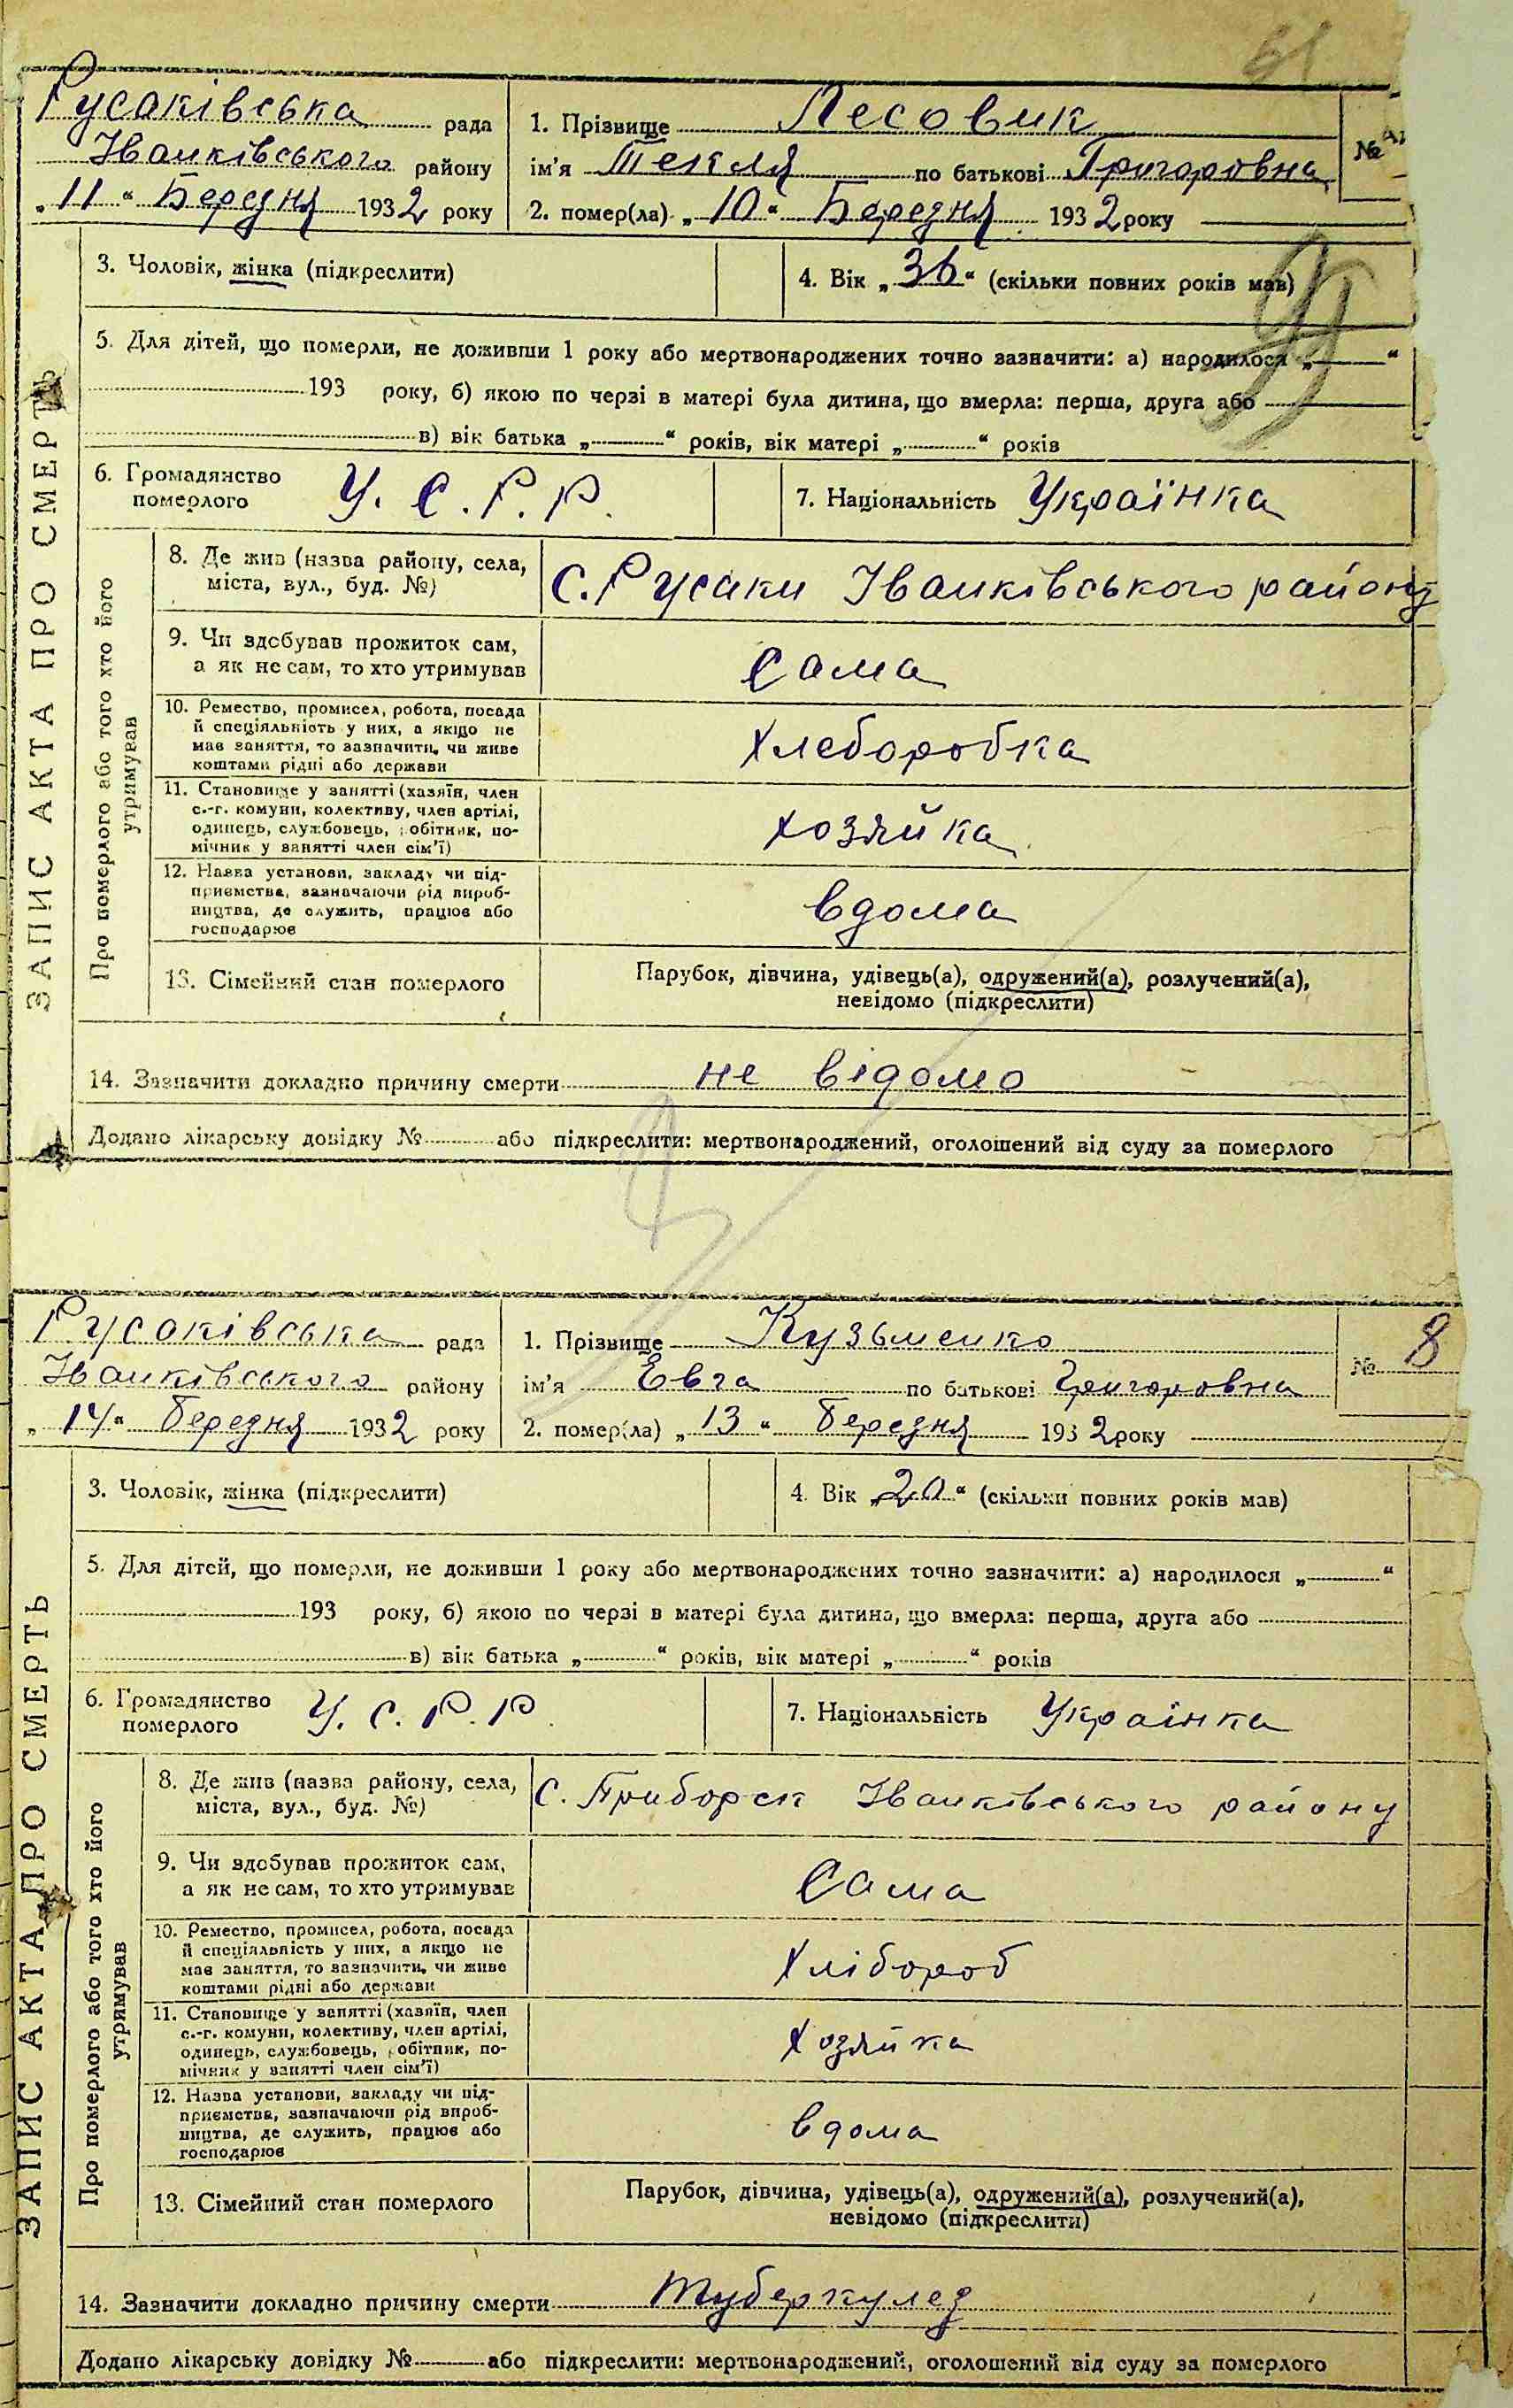 Русаківська рада
Іванківського району
„11“ Березня 1932 року
1. Прізвище Лесовик
ім'я Текля по батькові Григоровна
2. помер(ла) „10“ Березня 1932 року
№
ЗАПИС АКТА ПРО СМЕРТЬ
3. Чоловік, жінка (підкреслити)
4. Вік „36“ (скільки повних років мав)
5. Для дітей, що померли, не доживши 1 року або мертвонароджених точно зазначити: а) народилося „ “
193 року, б) якою по черзі в матері була дитина, що вмерла: перша, друга або
в) вік батька „ “ років, вік матері „ “ років
6. Громадянство
померлого
У. С. Р. Р.
7. Національність Українка
Про померлого або того хто його
утримував
8. Де жив (назва району, села,
міста, вул., буд. №)
С. Русаки Іванківського району
9. Чи здобував прожиток сам,
а як не сам, то хто утримував
Сама
10. Ремество, промисел, робота, посада
й спеціяльність у них, а якщо не
мав заняття, то зазначити, чи живе
коштами рідні або держави
Хлеборобка
11. Становище у занятті (хазяїн, член
с.-г. комуни, колективу, член артілі,
одинець, службовець, робітник, по-
мічник у занятті член сім'ї)
хозяйка
12. Назва установи, закладу чи під-
приємства, зазначаючи рід вироб-
ництва, де служить, працює або
господарює
вдома
13. Сімейний стан померлого
Парубок, дівчина, удівець(а), одружений(а), розлучений(а),
невідомо (підкреслити)
14. Зазначити докладно причину смерти не відомо
Додано лікарську довідку № або підкреслити: мертвонароджений, оголошений від суду за померлого
Русаківська рада
Іванківського району
„14“ Березня 1932 року
1. Прізвище Кузьменко
ім'я Евга по батькові Григоровна
2. помер(ла) „13“ Березня 1932 року
№ 8
ЗАПИС АКТА ПРО СМЕРТЬ
3. Чоловік, жінка (підкреслити)
4. Вік „20“ (скільки повних років мав)
5. Для дітей, що померли, не доживши 1 року або мертвонароджених точно зазначити: а) народилося „ “
193 року, б) якою по черзі в матері була дитина, що вмерла: перша, друга або
в) вік батька „ “ років, вік матері „ “ років
6. Громадянство
померлого
У. С. Р. Р.
7. Національність Українка
Про померлого або того хто його
утримував
8. Де жив (назва району, села,
міста, вул., буд. №)
С. Приборск Іванківського району
9. Чи здобував прожиток сам,
а як не сам, то хто утримував
Сама
10. Ремество, промисел, робота, посада
й спеціяльність у них, а якщо не
мав заняття, то зазначити, чи живе
коштами рідні або держави
Хлібороб
11. Становище у занятті (хазяїн, член
с.-г. комуни, колективу, член артілі,
одинець, службовець, робітник, по-
мічник у занятті член сім'ї)
Хозяйка
12. Назва установи, закладу чи під-
приємства, зазначаючи рід вироб-
ництва, де служить, працює або
господарює
вдома
13. Сімейний стан померлого
Парубок, дівчина, удівець(а), одружений(а), розлучений(а),
невідомо (підкреслити)
14. Зазначити докладно причину смерти туберкулез
Додано лікарську довідку № або підкреслити: мертвонароджений, оголошений від суду за померлого